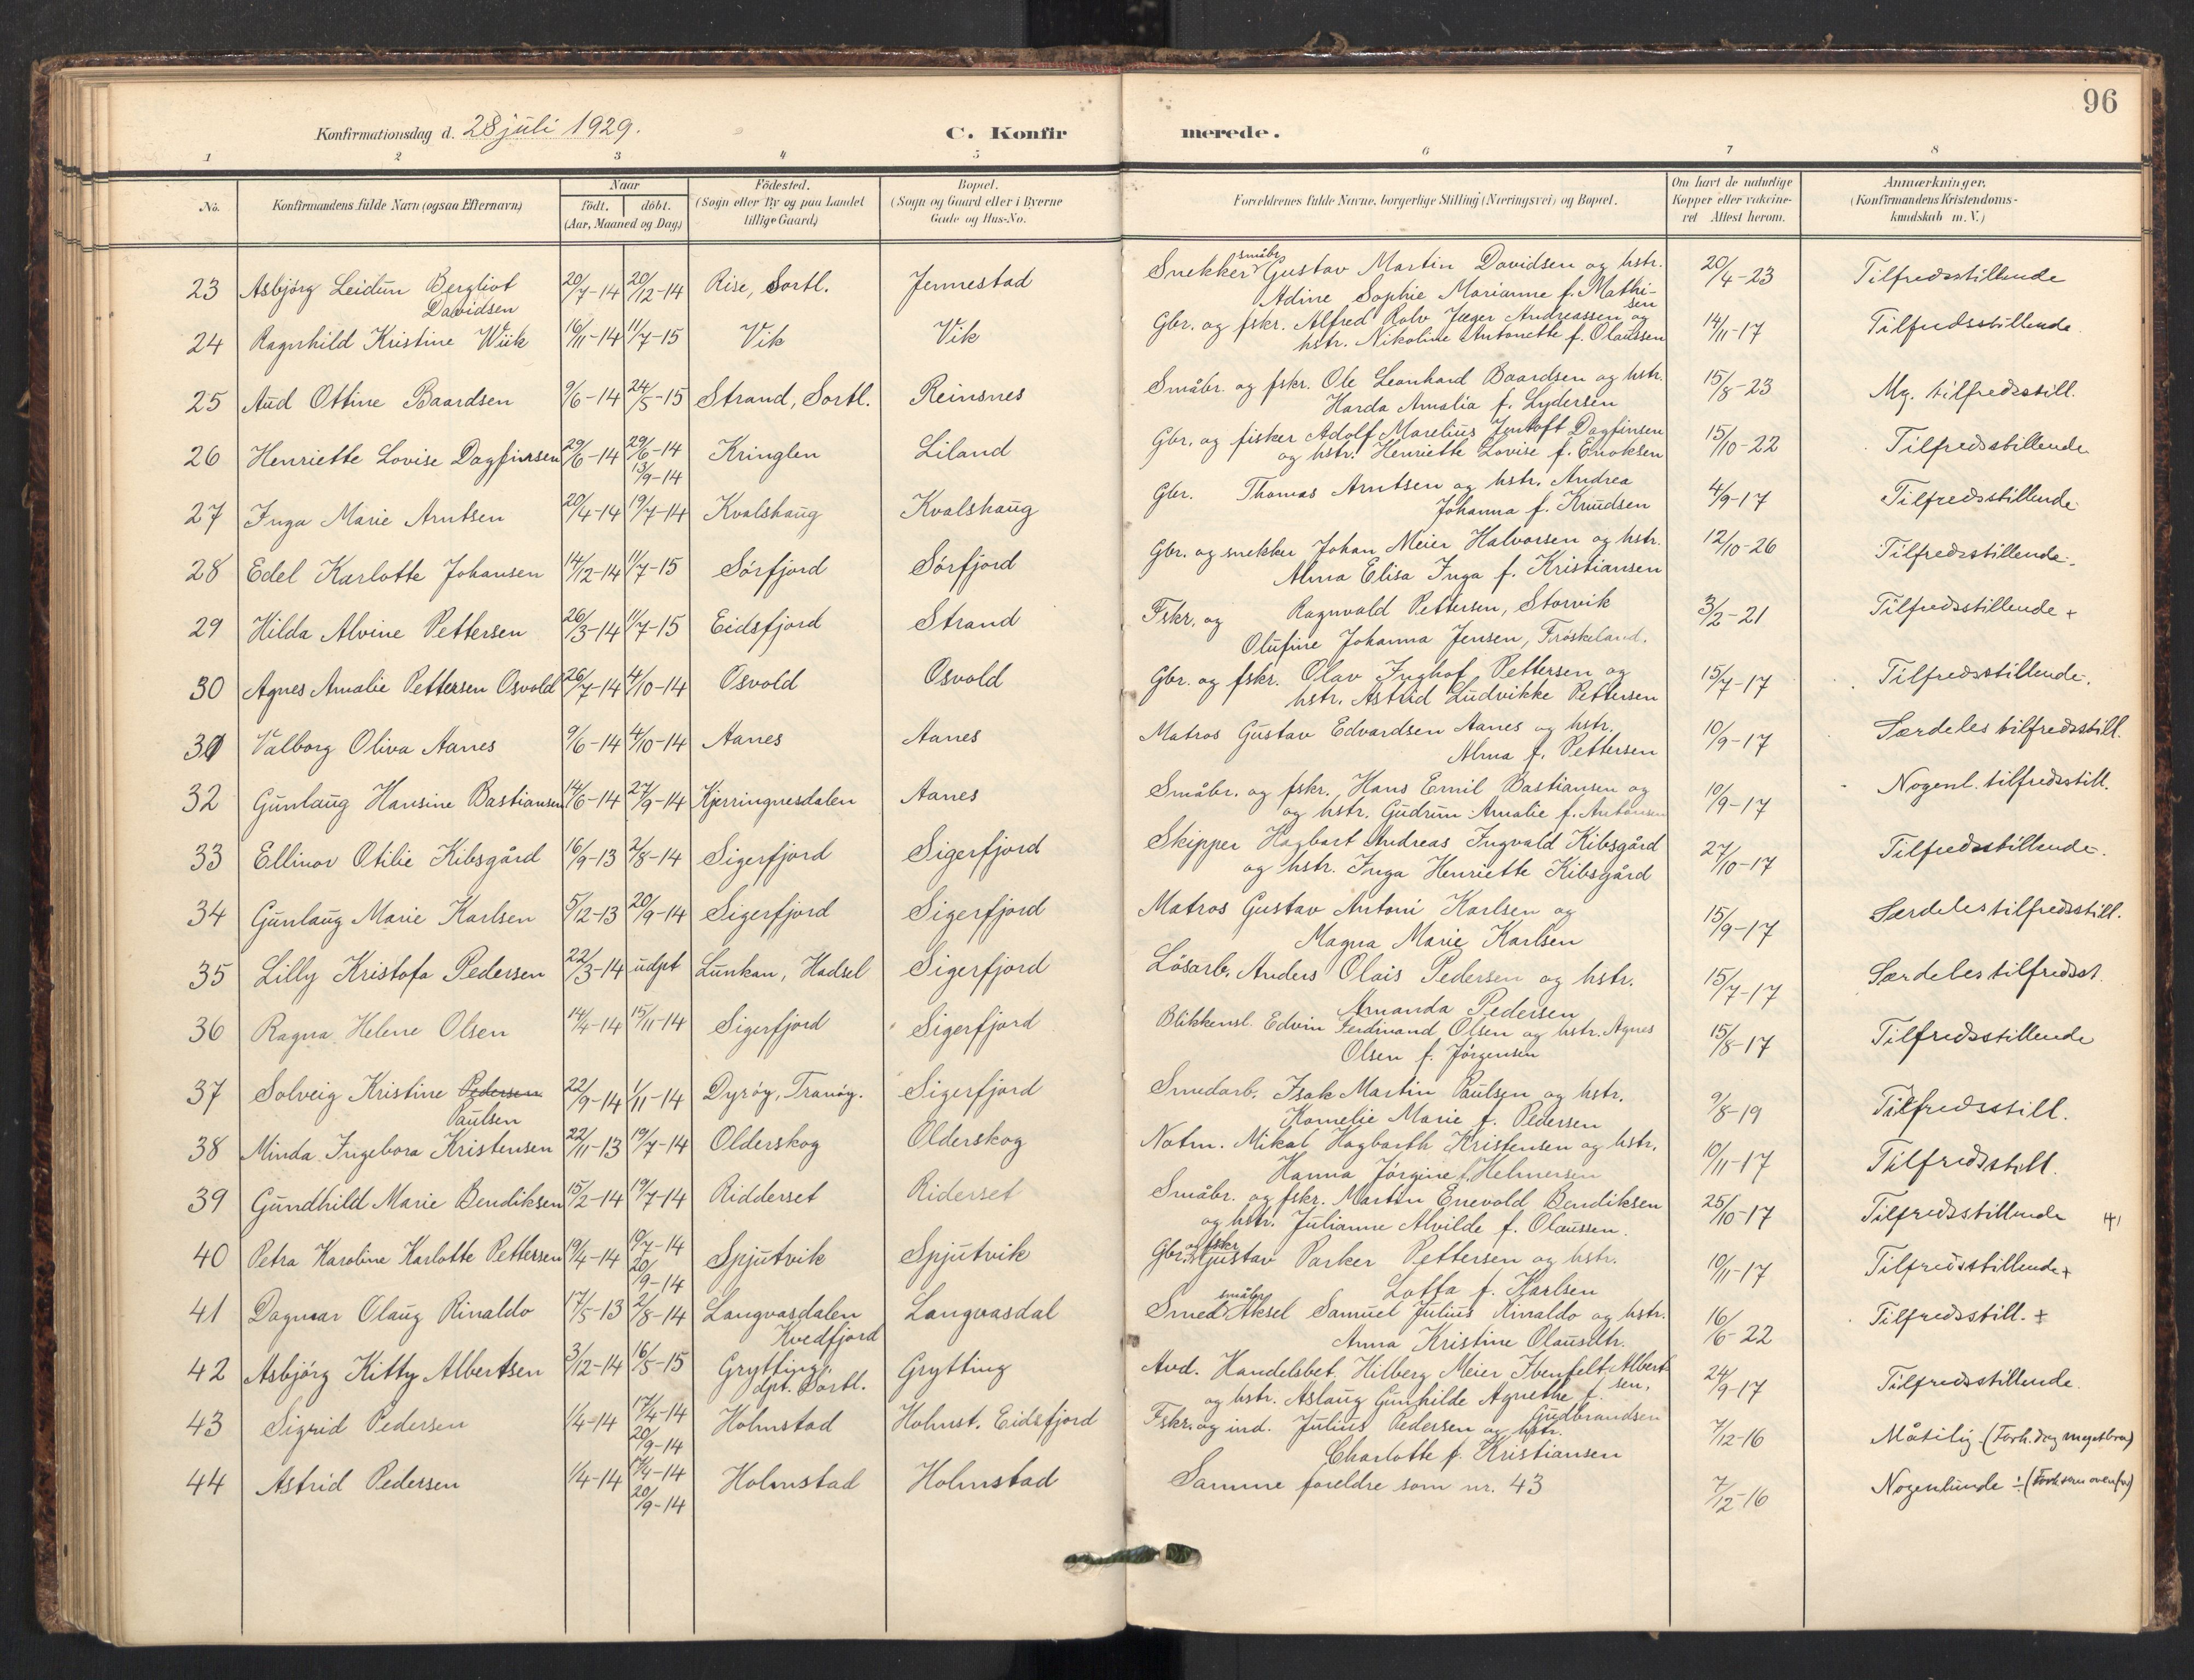 96
Konfirmationsdag d. 28 juli 1929. C. Konfirmerede.
1 2 3 4 5 6 7 8
No. Konfirmandens fulde Navn (ogsaa Efternavn) Naar födt. döbt. (Aar, Maaned og Dag) Födested. (Sogn eller By og paa Landet tillige Gaard) Bopæl. (Sogn og Gaard eller i Byerne Gade og Hus-No. Forældrenes fulde Navne, borgerlige Stilling (Næringsvei) og Bopæl. Om havt de naturlige Kopper eller vaccineret Attest herom. Anmærkninger. (Konfirmandens Kristendomskundskab m. V.)
23 Asbjörg Leidun Bergliot Davidsen 20/7-14 20/12-14 Rise, Sortl. Jennestad Snekker småbr Gustav Martin Davidsen og hstr.
Adine Sophie Marianne f. Mathisen 20/4-23 Tilfredsstillende
24 Ragnhild Kristine Wiik 16/11-14 11/7-15 Vik Vik Gbr. og fskr. Alfred Rolv Jæger Andreassen og
hstr. Nikoline Antonette f. Olaussen 14/11-17 Tilfredsstillende
25 Aud Ottine Baardsen 9/6-14 24/5-15 Strand, Sortl. Reinsnes Småbr. og fskr. Ole Leonhard Baardsen og hstr.
Harda Amalia f. Lydersen 15/8-23 Mg. tilfredsstill.
26 Henriette Lovise Dagfinsen 29/6-14 29/6-14 13/9-14 Kringlen Liland Gbr. og fisker Adolf Marelius Jentoft Dagfinsen
og hstr. Henriette Lovise f. Enoksen 15/10-22 Tilfredsstillende
27 Inga Marie Arntsen 20/4-14 19/7-14 Kvalshaug Kvalshaug Gbr. Thomas Arntsen og hstr. Andrea
Johanna f. Knudsen 4/9-17 Tilfredsstillende
28 Edel Karlotte Johansen 14/12-14 11/7-15 Sörfjord Sörfjord Gbr. og snekker Johan Meier Halvorsen og hstr.
Alma Elisa Inga f. Kristiansen 12/10-26 Tilfredsstillende
29 Hilda Alvine Pettersen 26/3-14 11/7-15 Eidsfjord Strand Fskr. og Ragnvald Pettersen, Storvik
Olufine Johanna Jensen, Fröskeland. 3/2-21 Tilfredsstillende +
30 Agnes Amalie Pettersen Osvold 26/7-14 4/10-14 Osvold Osvold Gbr. og fskr. Olav Inghof Pettersen og
hstr. Astrid Ludvikke Pettersen 15/7-17 Tilfredsstillende.
31 Valborg Oliva Aanes 9/6-14 4/10-14 Aanes Aanes Matros Gustav Edvardsen Aanes og hstr.
Alma f. Pettersen 10/9-17 Særdeles tilfredsstill.
32 Gunlaug Hansine Bastiansen 14/6-14 27/9-14 Kjerringnesdalen Aanes Småbr. og fskr. Hans Emil Bastiansen og
og hstr. Gudrun Amalie f. Antonsen 10/9-17 Nogenl. tilfredsstill.
33 Ellinor Otilie Kibsgård 16/9-13 2/8-14 Sigerfjord Sigerfjord Skipper Hagbart Andreas Ingvald Kibsgård
og hstr. Inga Henriette Kibsgård 27/10-17 Tilfredsstillende.
34 Gunlaug Marie Karlsen 5/12-13 20/9-14 Sigerfjord Sigerfjord Matros Gustav Antoni Karlsen og
Magna Marie Karlsen 15/9-17 Særdeles tilfredsstill.
35 Lilly Kristofa Pedersen 22/3-14 udpt Lunkan, Hadsel Sigerfjord Lösarb. Anders Olais Pedersen og hstr.
Amanda Pedersen 15/7-17 Særdeles tilfredsst.
36 Ragna Helene Olsen 14/4-14 15/11-14 Sigerfjord Sigerfjord Blikkensl. Edvin Ferdinand Olsen og hstr. Agnes
Olsen f. Jörgensen 15/8-17 Tilfredsstillende
37 Solveig Kristine Pedersen Paulsen 22/9-14 1/11-14 Dyröy, Tranöy. Sigerfjord Smedarb. Isak Martin Paulsen og hstr.
Kornelie Marie f. Pedersen 9/8-19 Tilfredsstill.
38 Minda Ingebora Kristensen 22/11-13 19/7-14 Olderskog Olderskog Notm. Mikal Hagbarth Kristensen og hstr.
Hanna Jörgine f. Helmersen 10/11-17 Tilfredsstill.
39 Gundhild Marie Bendiksen 15/2-14 19/7-14 Ridderset Riderset Småbr. og fskr. Martin Enevold Bendiksen
og hstr. Julianne Alvilde f. Olaussen. 25/10-17 Tilfredsstillende
40 Petra Karoline Karlotte Pettersen 19/4-14 10/7-14 20/9-14 Spjutvik Spjutvik Gbr. og fskr Gustav Parker Pettersen og hstr.
Lotta f. Karlsen 10/11-17 Tilfredsstillende +
41 Dagmar Olaug Rinaldo 17/5-13 2/8-14 Langvasdalen Kvedfjord Langvasdal Smed småbr Aksel Samuel Julius Rinaldo og hstr.
Anna Kristine Olausdtr. 16/6-22 Tilfredsstill. +
42 Asbjörg Kitty Albertsen 3/12-14 16/5-15 Grytting, dpt. Sortl. Grytting Avd. Handelsbet. Hilberg Meier Ibenfelt Albertsen,
og hstr. Aslaug Gunhilde Agnethe f. Gudbrandsen 24/9-17 Tilfredsstillende.
43 Sigrid Pedersen 1/4-14 17/4-14 20/9-14 Holmstad Holmst. Eidsfjord Fskr. og ind. Julius Pedersen og hstr.
Charlotte f. Kristiansen 7/12-16 Måtelig. (Forh. dog meget bra)
44 Astrid Pedersen 1/4-14 17/4-14 20/9-14 Holmstad Holmstad Samme foreldre som nr. 43 7/12-16 Nogenlunde ÷ (Forh. som ovenfor)